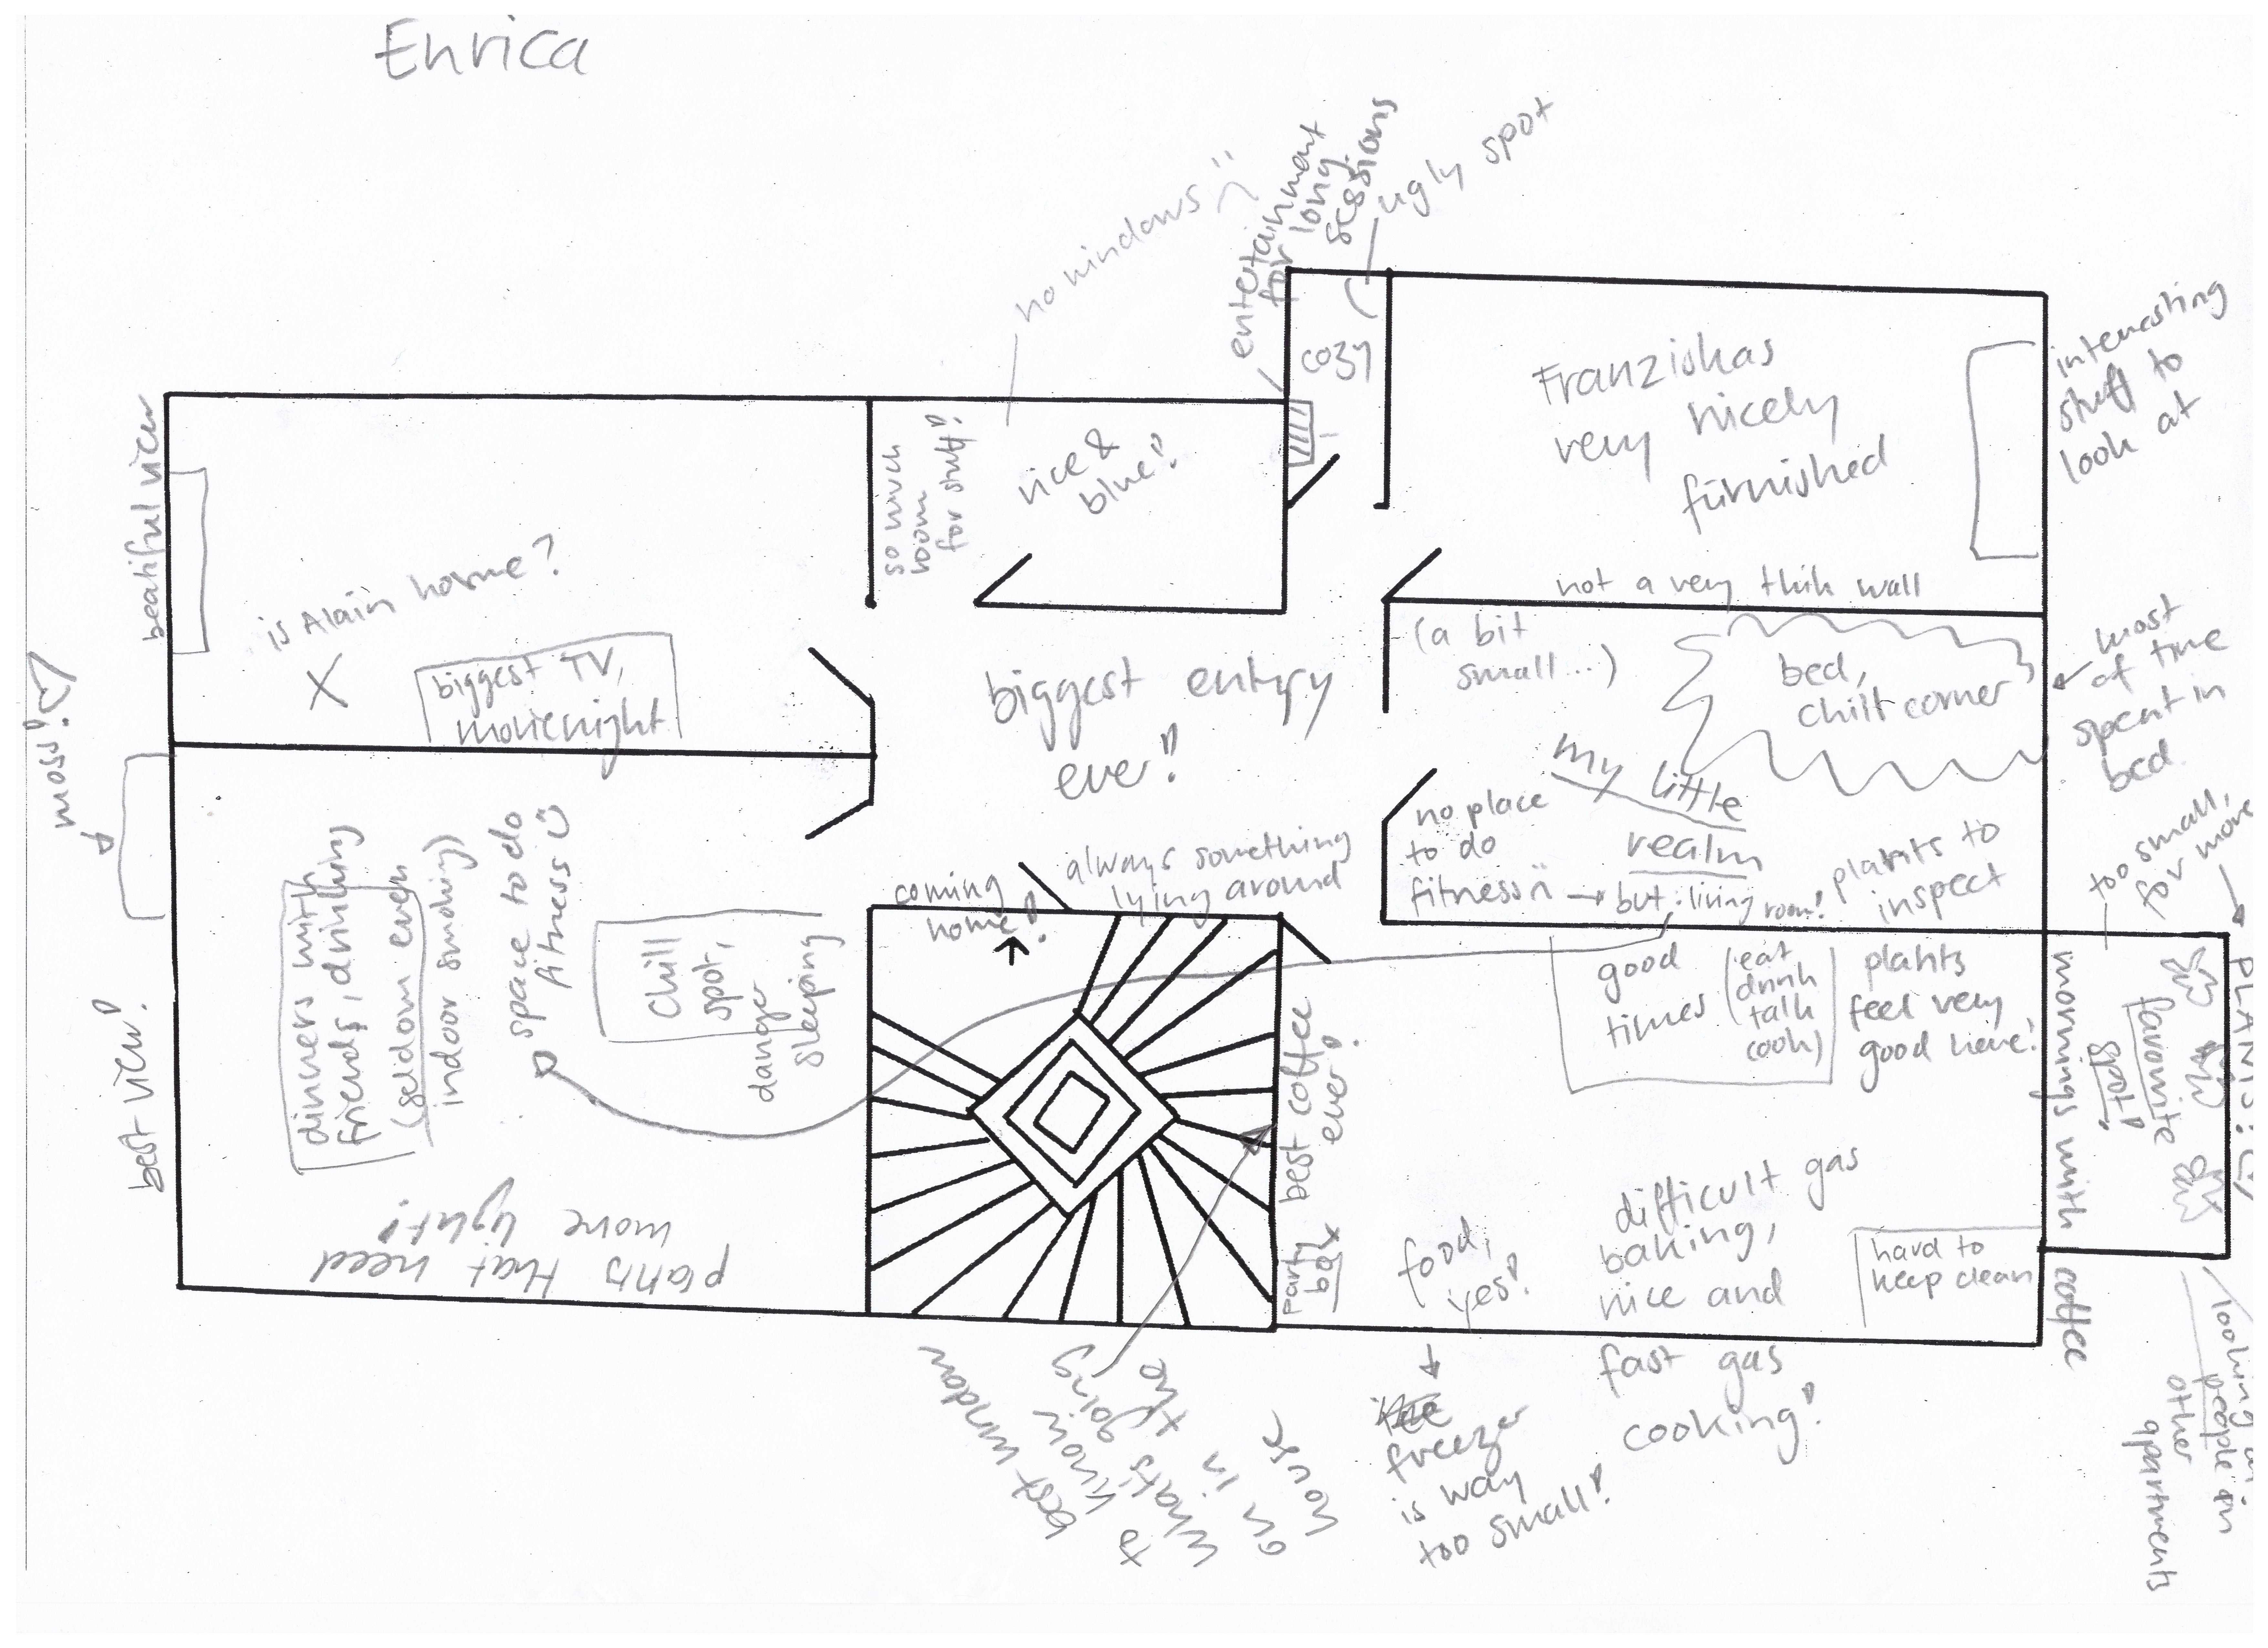 Enrica
no windows
entertainment
for long
sessions
ugly spot
cozy
Franziskas
very nicely
furnished
interesting
stuff to
look at
beatiful view
is Alain home?
X
biggest TV,
movienight
so much
room
for stuff!
nice &
blue!
not a very thik wall
(a bit
small...)
bed,
chill corner
most
of time
spent in
bed
biggest entry
ever!
my little
realm
no place
to do
fitness → but: living room!
plants to
inspect
too small,
for more
PLANTS!
moss!
best view!
dinners with
friends, drinking
(seldom even
indoor smoking)
space to do
fitness
chill
spot,
danger
sleeping
plants that need
more light!
coming
home!
always something
lying around
best coffee
ever!
party
box
good
times
(eat
drink
talk
cook)
plants
feel very
good here!
mornings with coffee
favourite
spot!
food,
yes!
freezer
is way
too small!
difficult gas
baking,
nice and
fast gas
cooking!
hard to
keep clean
best window
to know
what's going
on in the
house
looking
people in
other
apartments